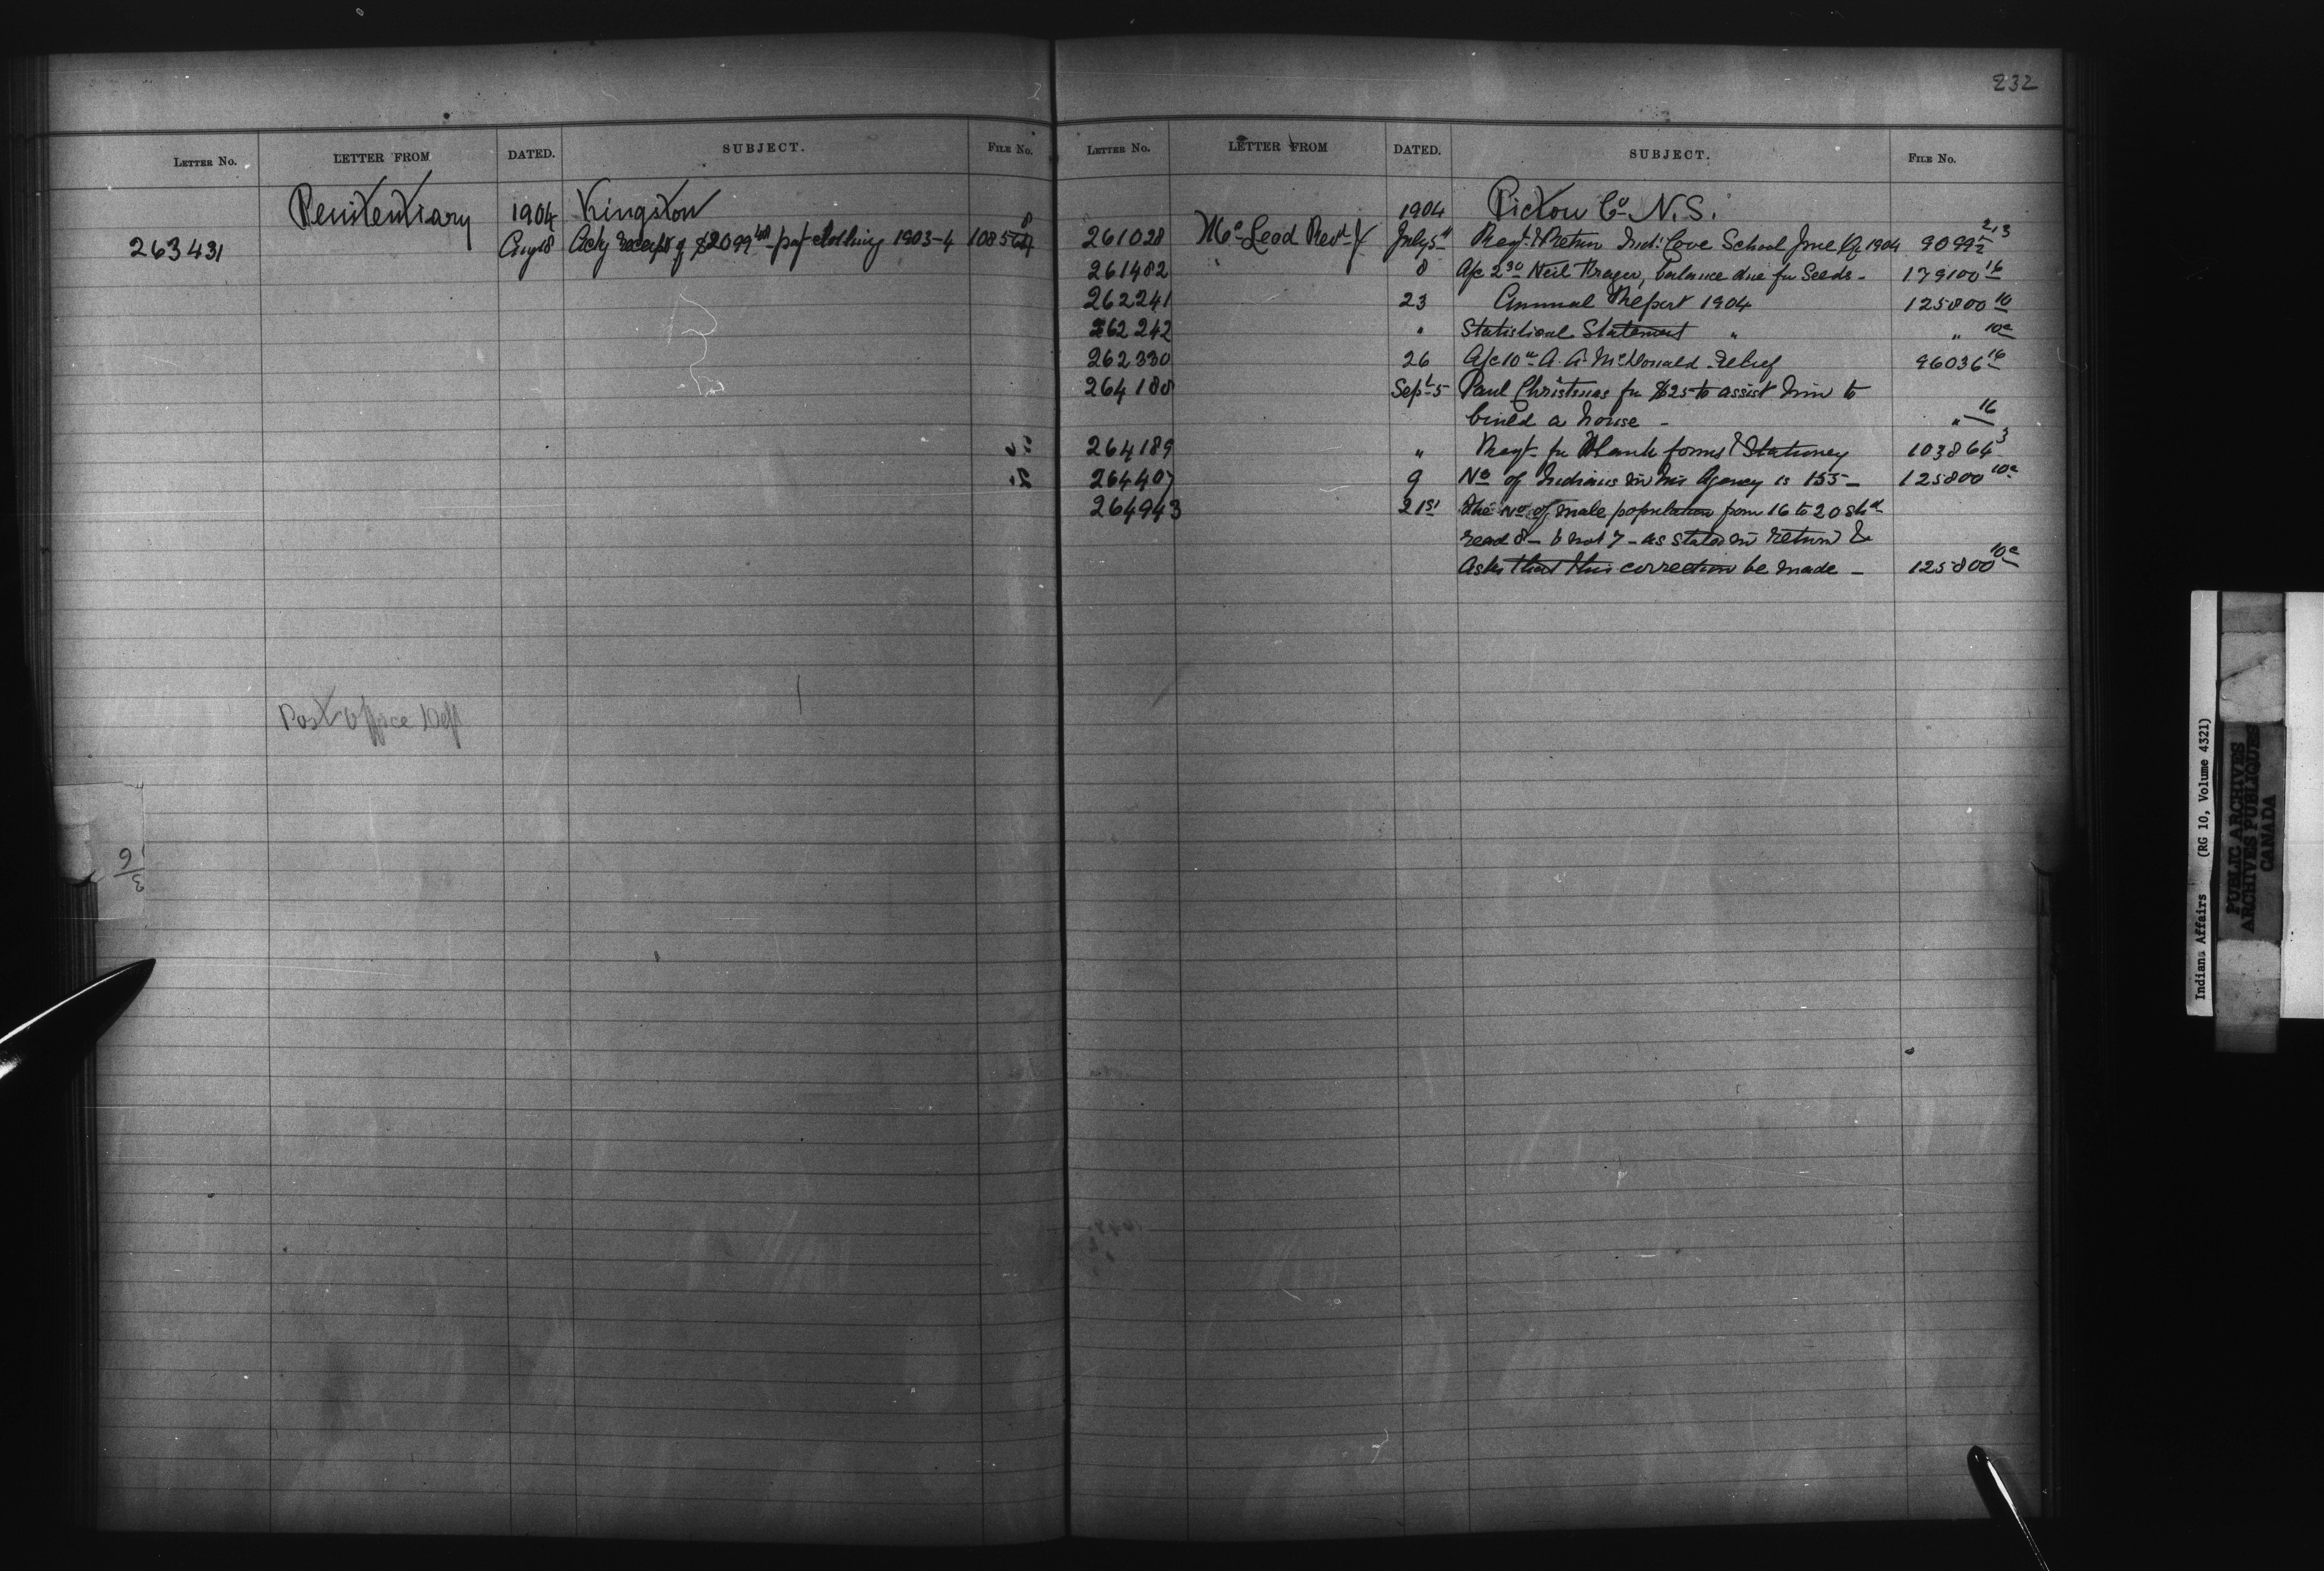 232
LETTER No. LETTER FROM DATED. SUBJECT. FILE No.
Penitentiary 1904 Kingston
263431 Aug 18 Ackg receipt of $2099 48 - pay't clothing 1903-4 1085
Post Office Dept
LETTER No. LETTER FROM DATED. SUBJECT. FILE No.
1904 Pictou Co N.S.
261028 McLeod Revd J July 5th Reqt & Return Ind: Cove School June Qr 1904 9099
261482 8 A/c 2.30 Neil, balance due for Seeds - 179100 16
262241 23 Annual Report 1904 125800 10
262242 " Statistical Statement " " 10a
262330 26 A/c 10.- A. A. McDonald - Relief 96036 16
264180 Sept 5 Paul Christmas for $25 to assist him to
build a house - " 16
264189 " Reqt. for Blank forms & Stationery 103864 3
264407 9 No of Indians in his Agency is 155 - 125800 10a
264943 21st The No of male population from 16 to 20 shd
read 8 - & not 7 - as stated in return &
Asks that this correction be made - 125800 10a
Indians Affairs (RG 10, Volume 4321)
PUBLIC ARCHIVES
ARCHIVES PUBLIQUES
CANADA